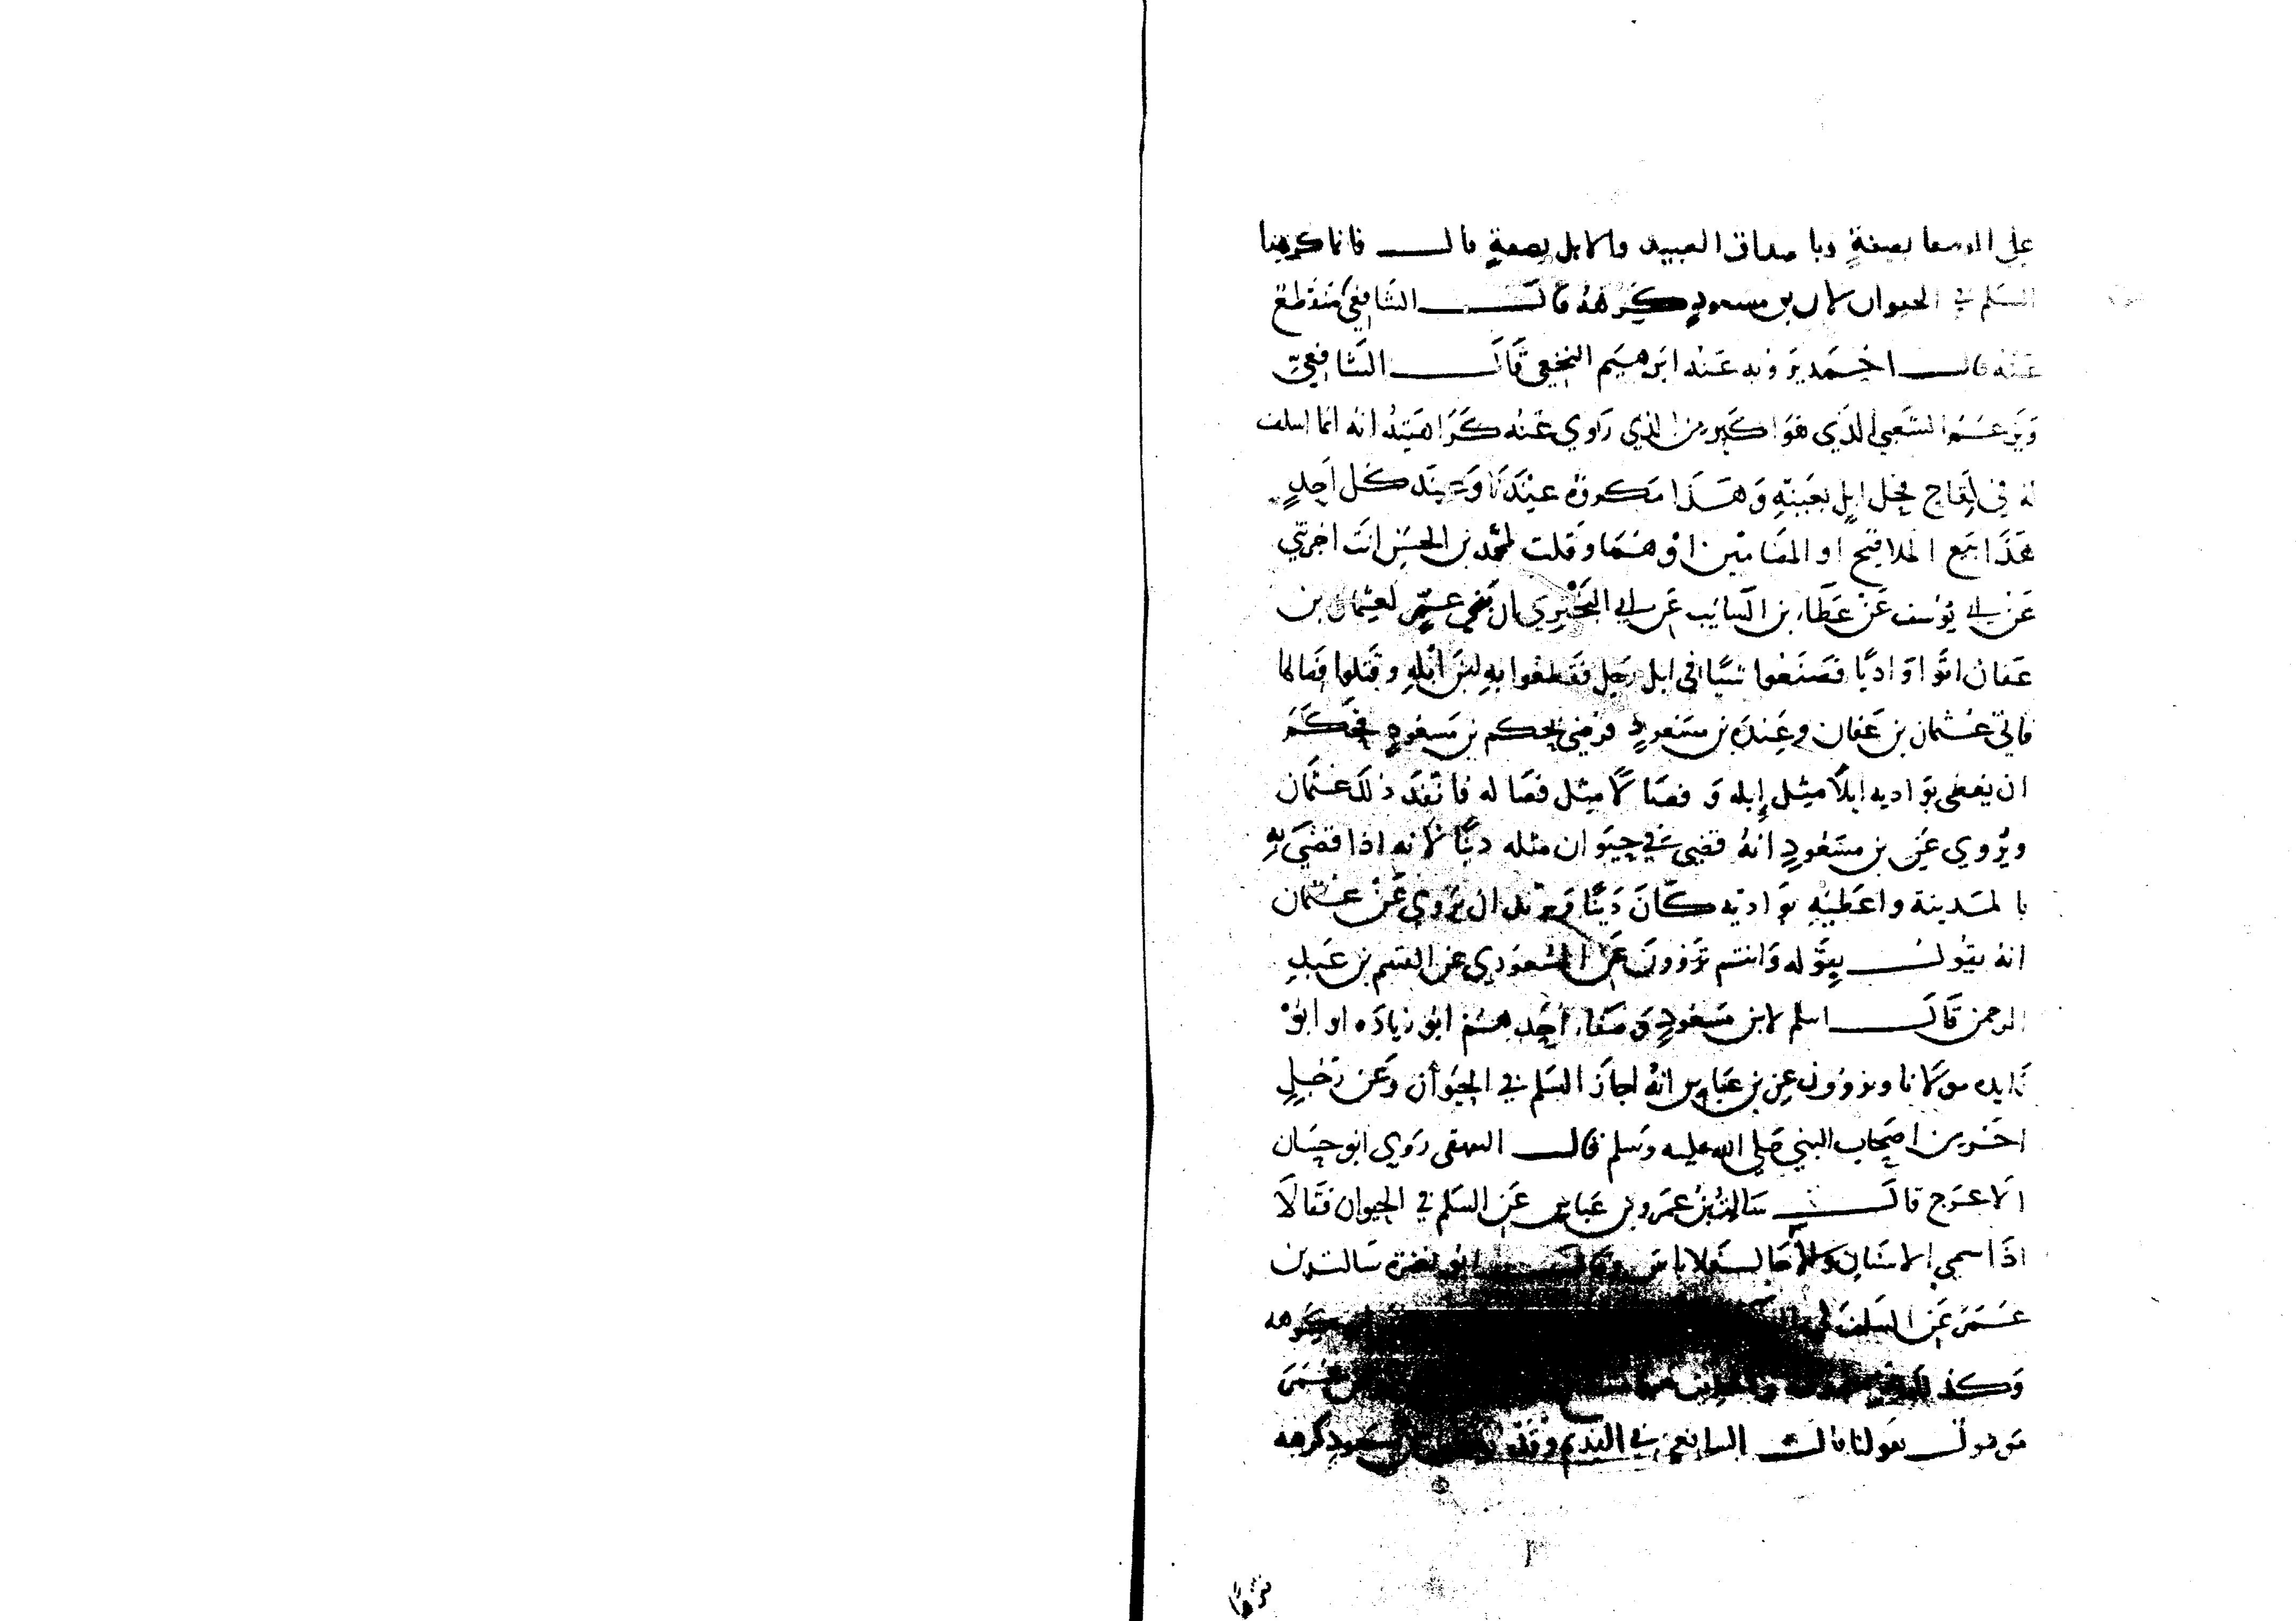 على الرضعا بصفةٍ وبا صداق العبيد والابل بصفةٍ قال فانما كرهنا
السلم في الحيوان لان بن مسعودٍ كرهه قال الشافعي منقطع
عنه قال احمد يرويه عنه ابرهيم النخعي قال الشافعيّ
ويزعم الشعبي الذي هو اكبر من الذي روي عنه كراهيته انه انما اسلف
له في لقاح فحل ابلٍ بعينه وهذا مكروه عندنا وعند كل احدٍ
هذا بيع الملاقيح او المضامين اوهما وقلت لمحمد بن الحسن انت اخبرتني
عن ابي يوسف عن عطاء بن السائب عن ابي البختري ان بني عمٍّ لعثمان بن
عفان اتوا واديًا فصنعوا شيًا في ابل رجل فقطعوا به لبن ابله وقتلوا فصالها
فاتى عثمان بن عفان وعنده بن مسعودٍ فرضي بحكم بن مسعودٍ فحكم
ان يعطى بواديه ابلًا مثل إبله و فصالًا مثل فصاله فانفذ ذلك عثمان
ويُروي عن بن مسعودٍ انهُ قضى في حيوان مثله دينًا لانه اذا قضى به
بالمدينة واعطيه بواديه كان دينًا ونزيد ان نروي عن عثمان
انه يقول بقوله وانتم تروون عن المسعودي عن القسم بن عبدِ
الرحمن قال اسلم لابن مسعودٍ وصفاء احدهم ابو زياده او ابو
زايده مولانا وتروون عن بن عباس انه اجاز السلم في الحيوان وعن رجلٍ
اخر من اصحاب النبي صلى الله عليه وسلم قال البيهقي روي ابو حسان
الاعرج قال سالت بن عمر وبن عباس عن السلم في الحيوان فقالا
اذا سمي الاسنان والآجال فلا باس وقال ابو نضرة سالت بن
عمر عن السلف في
وكذلك عمر
نقول بقولنا قال الشافعي في القديم وقد مسعودٍ كرهه